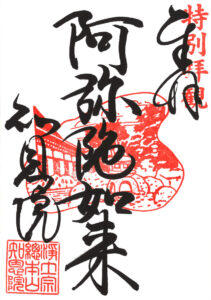 特別拝観
奉拝
阿弥陀如来
知恩院
浄土宗
總本山
知恩院